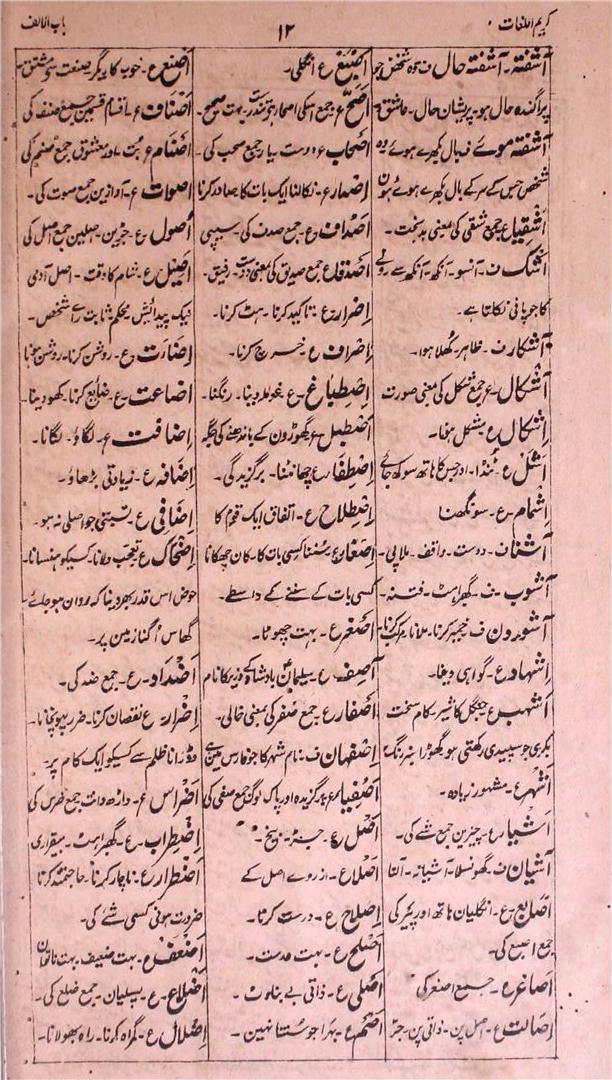 کریم اللغات
۱۲
باب الالف
آشفتہ۔ آشفتہ حال ف وہ شخص جو
پراگندہ حال ہو۔ پریشان حال۔ عاشق
آشفتہ موئے ف بال بکھرے ہوئے وہ
شخص جس کے سر کے بال بکھرے ہوئے ہون
اشقیا ع جمع شقی کی معنی بدبخت۔
اشک ف۔ آنسو۔ آنکھ۔ آنکھ سے رونے
کا جو پانی نکلتا ہے۔
آشکار ف۔ ظاہر۔ کھلا ہوا۔
اشکال۔ ع جمع شکل کی معنی صورت
اِشکال ع مشکل ہونا۔
اشل ع۔ ٹنڈا۔ اور جس کا ہاتھ سوکھ جائے
اِشمام۔ ع۔ سونگھنا
آشنا ف۔ دوست۔ واقف۔ ملاپی۔
آشوب۔ ف۔ گھبراہٹ۔ فتنہ۔
آشوردن ف خمیر کرنا۔ ملانا
اِشہاد ع۔ گواہی دینا۔
اشہب ع جنگل کا شیر۔ کام سخت
بکری جو سپیدی رکھتی ہو گھوڑا سبز رنگ
اشہر ع۔ مشہور زیادہ۔
اشیا ع۔ چیزین جمع شے کی۔
آشیان ف۔ گھونسلا۔ آشیانہ۔ آلنا
اَصابع۔ ع۔ انگلیان ہاتھ اور پیر کی
جمع اصبع کی۔
اصاغر ع۔ جمع اصغر کی
اصالت ع۔ اصل پن۔ ذاتی پن۔ جڑ
اِصبع ع انگلی۔
اصح ع جمع اسکی اصحا۔ تندرست۔ بہت صحیح۔
اصحاب ع دوست۔ یار جمع صحب کی۔
اصدار ع۔ نکالنا ایک بات کا صادر کرنا
اصداف۔ ع۔ جمع صدف کی۔ سیپی
اصدقا ع جمع صدیق کی معنی دوست رفیق۔
اِصرار ع۔ تاکید کرنا۔ ہٹ کرنا۔
اِصراف ع خرچ کرنا۔
اِصطباغ۔ ع۔ غوطہ دینا۔ رنگنا۔
اصطبل۔ ع گھوڑون کے باندھنے کی جگہ
اِصطفا۔ ع چھانٹنا۔ برگزیدگی۔
اِصطلاح ع۔ اتفاق ایک قوم کا
اِصغا۔ ع سننا کسی بات کا۔ کان جھکانا
کسی بات کے سننے کے واسطے۔
اصغر ع۔ بہت چھوٹا۔
آصف ع سلیمان بادشاہ کے وزیر کا نام
اصفار ع جمع صفر کی معنی خالی۔
اصفہان ف۔ نام شہر کا جو فارس مین ہے
اصفیا۔ ع برگزیدہ اور پاک لوگ جمع صفی کی
اصل ع۔ جڑ۔ بیخ۔
اصلا ع۔ از روے اصل کے
اِصلاح ع۔ درست کرنا۔
اصلح ع۔ بہت درست۔
اصلی ع۔ ذاتی بے بناوٹ۔
اصم ع۔ بہرا جو سنتا نہین۔
اصنع ع۔ خوب کاریگر صنعت سے مشتق ہے
اصناف ع۔ اقسام قسمین جمع صنف کی
اصنام ع بت۔ اور معشوق جمع صنم کی
اصوات ع۔ آوازین جمع صوت کی۔
اصول ع۔ جڑین۔ اصلین جمع اصل کی
اصیل ع۔ شام کا وقت۔ اصل آدمی
نیک پیدائش محکم ثابت رائے شخص۔
اِضاءت ع۔ روشن کرنا۔ روشن ہونا
اضاعت۔ ع۔ ضایع کرنا۔ کھو دینا۔
اِضافت ع۔ لگاؤ۔ لگانا۔
اِضافہ ع۔ زیادتی بڑھاؤ۔
اِضافی ع۔ نسبتی جو اصلی نہ ہو۔
اِضحاک ع تعجب دلانا۔ کسیکو ہنسانا۔
حوض اس قدر بھر دینا کہ روان ہو جائے
گھاس اُگنا زمین پر۔
اضداد۔ ع۔ جمع ضد کی۔
اِضرار۔ ع نقصان کرنا۔ ضرر پہونچانا۔
دوڑانا ظلم سے کسیکو ایک کام پر۔
اضراس ع۔ داڑھ دانت جمع ضرس کی
اِضطراب۔ ع۔ گھبراہٹ۔ بیقراری
اضطرار ع۔ ناچار کرنا۔ حاجتمند کرنا
ضرورت ہونی کسی شے کی۔
اضعف ع۔ بہت ضعیف۔ بہت ناتوان
اضلاع۔ ع۔ پسلیان۔ جمع ضلع کی۔
اِضلال ع۔ گمراہ کرنا۔ راہ بھولانا۔